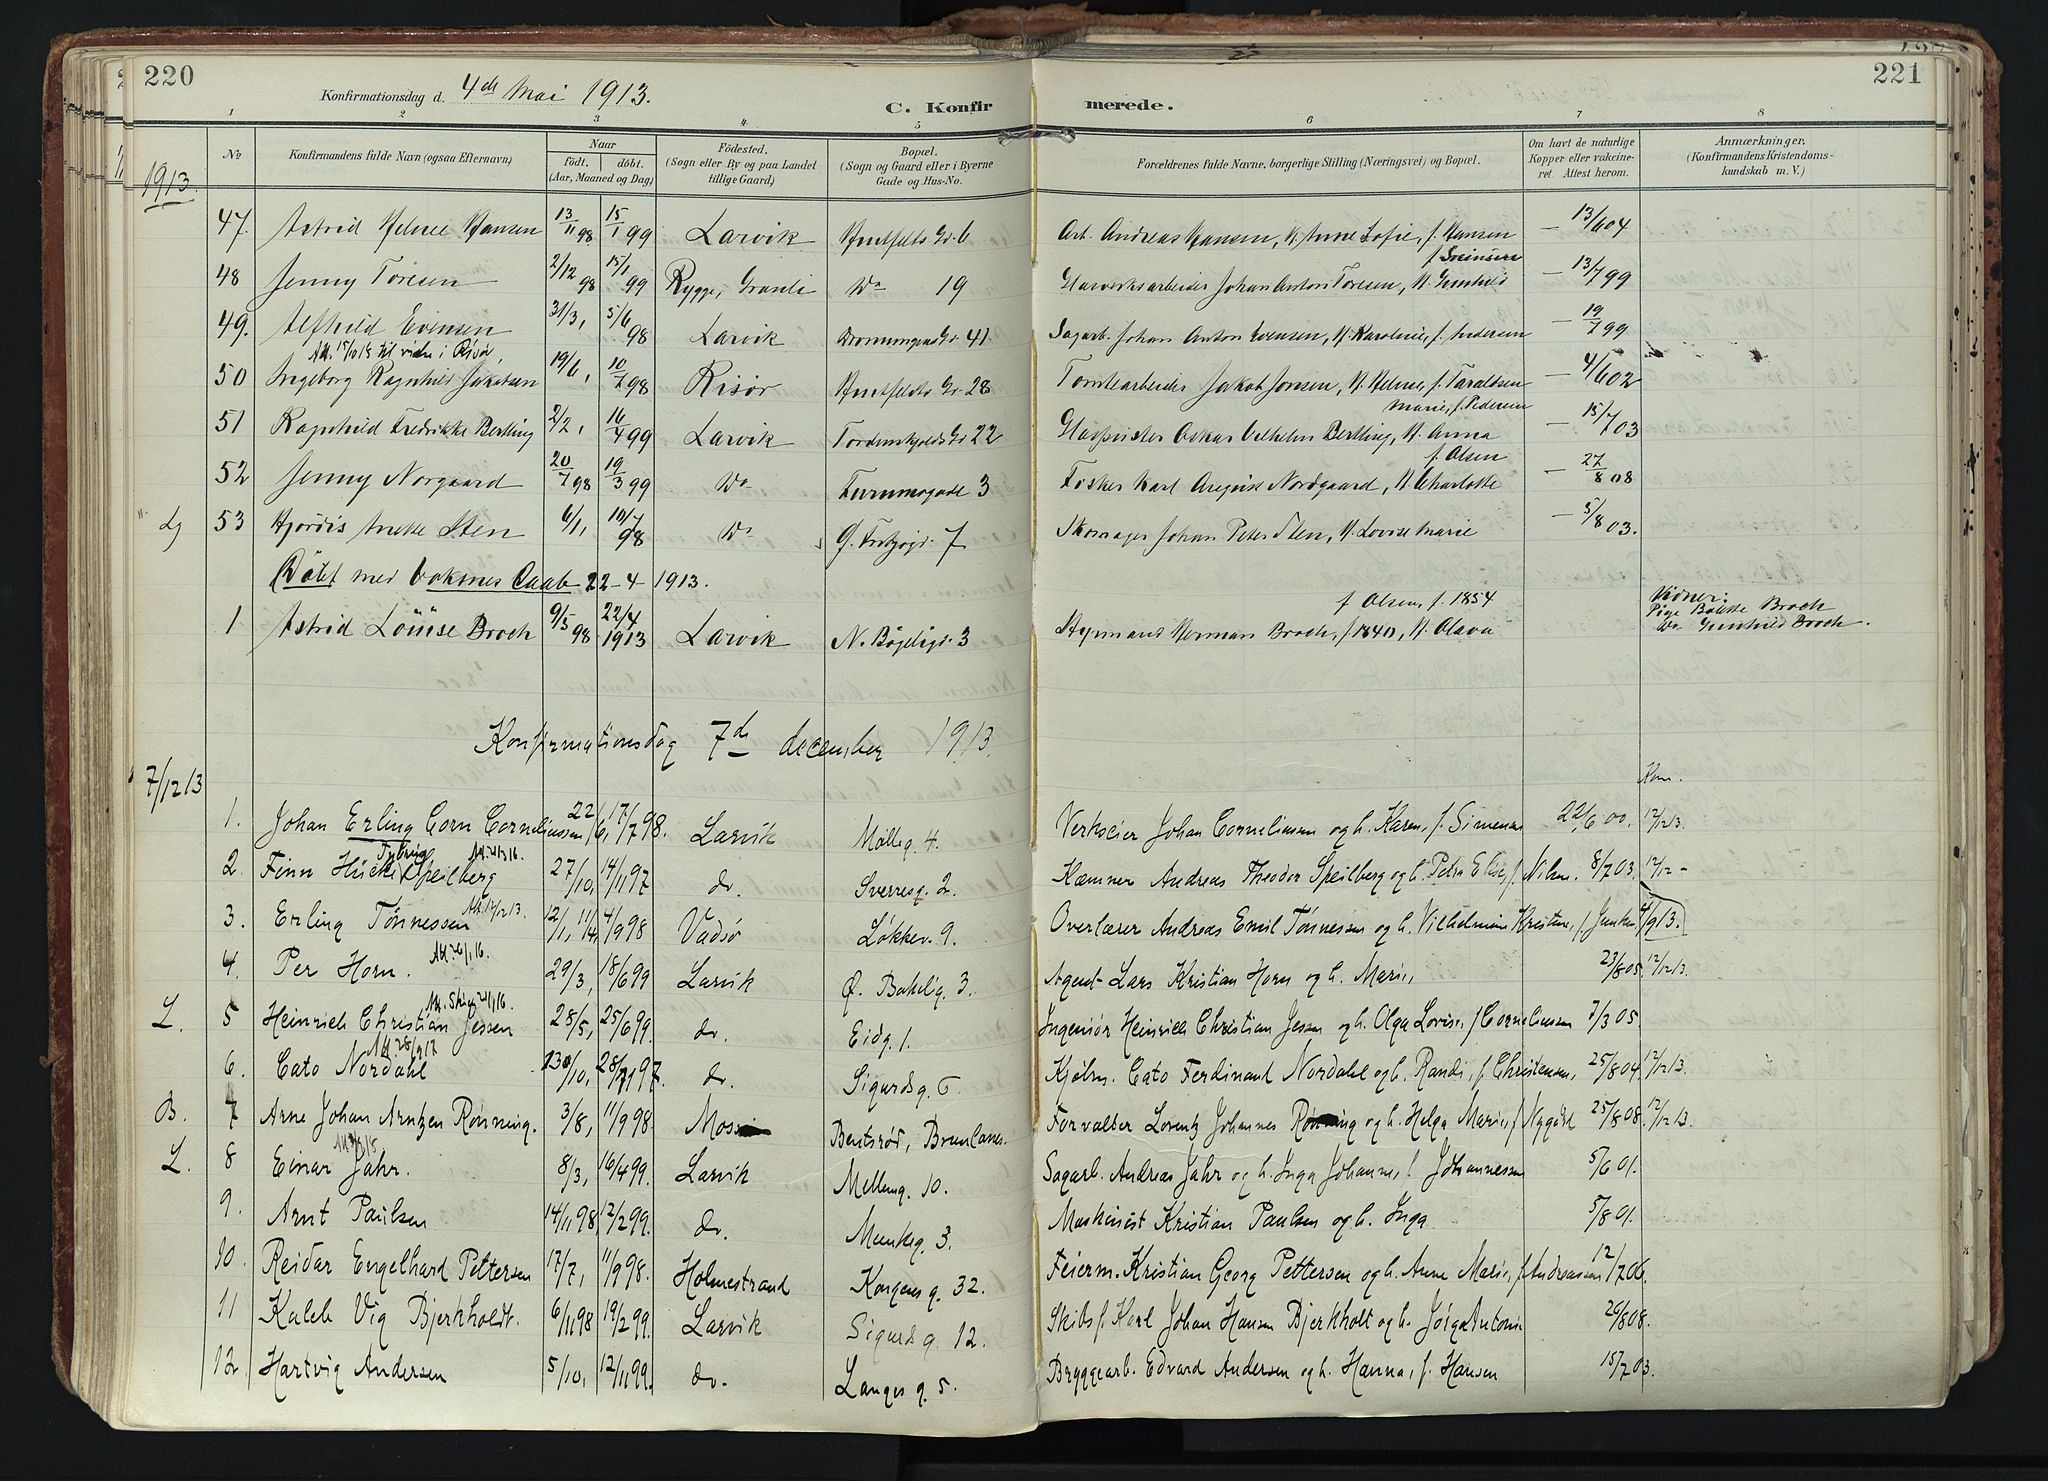 220
221
Konfirmationsdag d. 4de Mai 1913.
C. Konfirmerede.
1 2 3 4 5 6 7 8
No
Konfirmandens fulde Navn (ogsaa Efternavn)
Naar
födt. döbt.
(Aar, Maaned og Dag)
Födested.
(Sogn eller By og paa Landet
tillige Gaard)
Bopæl.
(Sogn og Gaard eller i Byerne
Gade og Hus-No.
Forældrenes fulde Navne, borgerlige Stilling (Næringsvei) og Bopæl.
Om havt de naturlige
Kopper eller vakcine-
ret. Attest herom.
Anmærkninger.
(Konfirmandens Kristendoms-
kundskab m. V.)
1913.
47. Astrid Helene Hansen 13/11 98 15/1 99 Larvik Huitfeldts Gr. 6 Arb. Andreas Hansen, H. Anne Sofie, f. Hansen – 13/6 04
f. Svensen
48 Jenny Toresen 2/12 98 15/1 99 Rygge, Do 19 Glasverksarbeider Johan Anton Toresen, H. Gunhild – 13/7 99
49. Alfhild Evensen 31/3, 5/6 98 Larvik Dronningens Gr. 41 Sagarb. Johan Anton Evensen, H. Karoline, f. Andersen – 19/7 99
i Risör,
50 Ingeborg Ragnhild Jakobsen 19/6, 10/7 98 Risör Huitfeldts Gr. 28 Tomtearbeider Jakob Jensen, H. Helene, f. Taraldsen – 4/6 02
Marie, f. Pedersen
51 Ragnhild Fredrikke Bertling 2/2, 16/4 99 Larvik Tordenskjolds Gr 22 Oskar Vilhelm Bertling, H. Anna – 15/7 03
f. Olsen
52 Jenny Norgaard 20/7 98 19/3 99 Do 3 Fisker Karl August Nordgaard, H. Charlotte – 27/8 08
53 Hjördis Anette Sten 6/1, 10/4 98 Do 7 Skomager Johan Peter Sten, H. Lovise Marie – 5/8 03.
Döbt med Voksnes Daab 22–4 1913.
f. Olsen, f. 1854
Vidner:
Pige Bolette Broch
1 Astrid Löuise Broch 9/5 98 22/4 1913 Larvik N. Bögeligr. 3 Styrmand Herman Broch, f. 1840, H. Olava
Do Gunhild Broch.
Konfirmationsdag 7de december 1913
7/12 13
Kom.
1. Johan Erling Corn Corneliussen 22/6, 17/7 98. Larvik Mölleg. 4. Verkseier Johan Corneliussen og h. Karen, f. Simensen 22/6 00. 12/12 13.
2. Finn Hücke Speilberg 27/10, 14/11 97 do. Sverresg. 2. Kæmner Andreas Theodor Speilberg og h. Petra Elise, f. 8/7 03. 12/12 –
3. Erling Tönnessen 12/1, 4/9 98 Vadsö Løkkev. 9. Overlærer Andreas Emil Tönnessen og h. Vilhelmine Kristine,
4. Per Horn. 29/3, 18/6 99 Larvik Ø. Bakelig. 3. Agent Lars Kristian Horn og h. Marie, 23/8 05. 12/12 13.
L. 5 Heinrich Christian Jessen 28/5, 25/6 99. do. Eidg. 1. Ingeniör Heinrich Christian Jessen og h. Olga Lovise, f. Corneliussen 7/3 05.
6. Cato Nordahl do. Sigurdsg. 6 Kjölm. Cato Ferdinand Nordahl og h. Randi, f. Christensen, 25/8 04. 12/12 13.
B. 7 Arne Johan Arntzen Rönning. 3/8, 11/9 98. Moss Bentsröd, Brunlanes. Forvalter Lorentz Johannes Rönning og h. Helga Marie, f. Nygård 25/8 08. 12/12 13.
L. 8 Einar Jahr. 8/3, 16/4 99. Larvik Mellemg. 10. Sagarb. Andreas Jahr og h. Inga Johanne, f. Johannessen 5/6 01.
9. Arnt Paulsen 14/11 98, 12/2 99. do. Munkeg. 3. Maskinist Kristian Paulsen og h. Inga 5/8 01.
10. Reidar Engelhard Pettersen 17/7, 11/9 98. Holmestrand Kongens g. 32. Feierm. Kristian Georg Pettersen og h. Anne Marie, f. Andreassen 12/7 06.
11 Kaleb Vig Bjerkholdt. 6/11 98 19/2 99. Larvik Sigurds g. 12. Skibsf. Karl Johan Hansen Bjerkholt og h. 26/8 08.
12. Hartvig Andersen 5/10, 12/11 99. do. Langes g. 5. Bryggearb. Edvard Andersen og h. Hanna, f. Hansen 15/7 03.